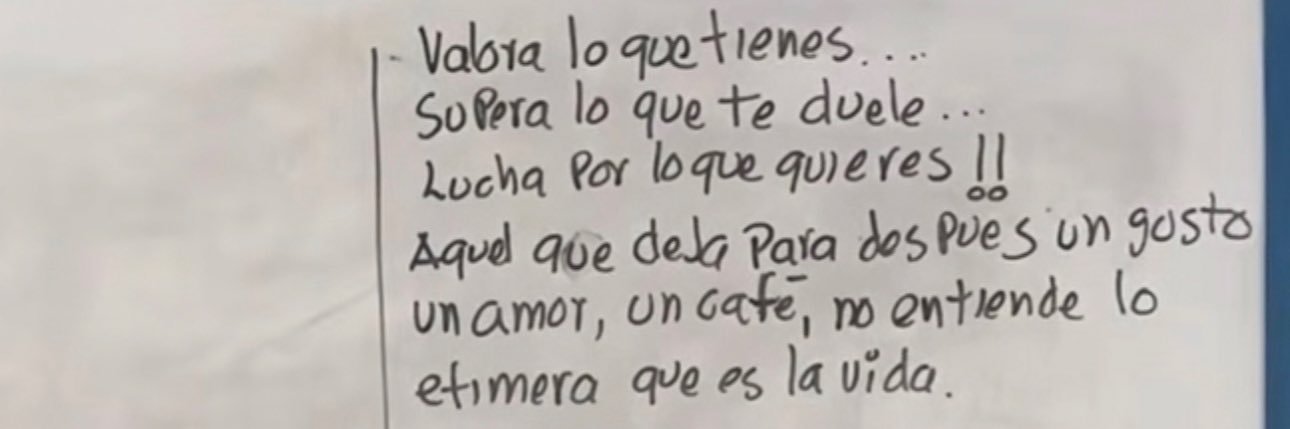 Valora lo que tienes....
Supera lo que te duele...
Lucha Por lo que quieres !!
Aquel que deja Para despues un gusto
un amor, un café, no entiende lo
efimera que es la vida.